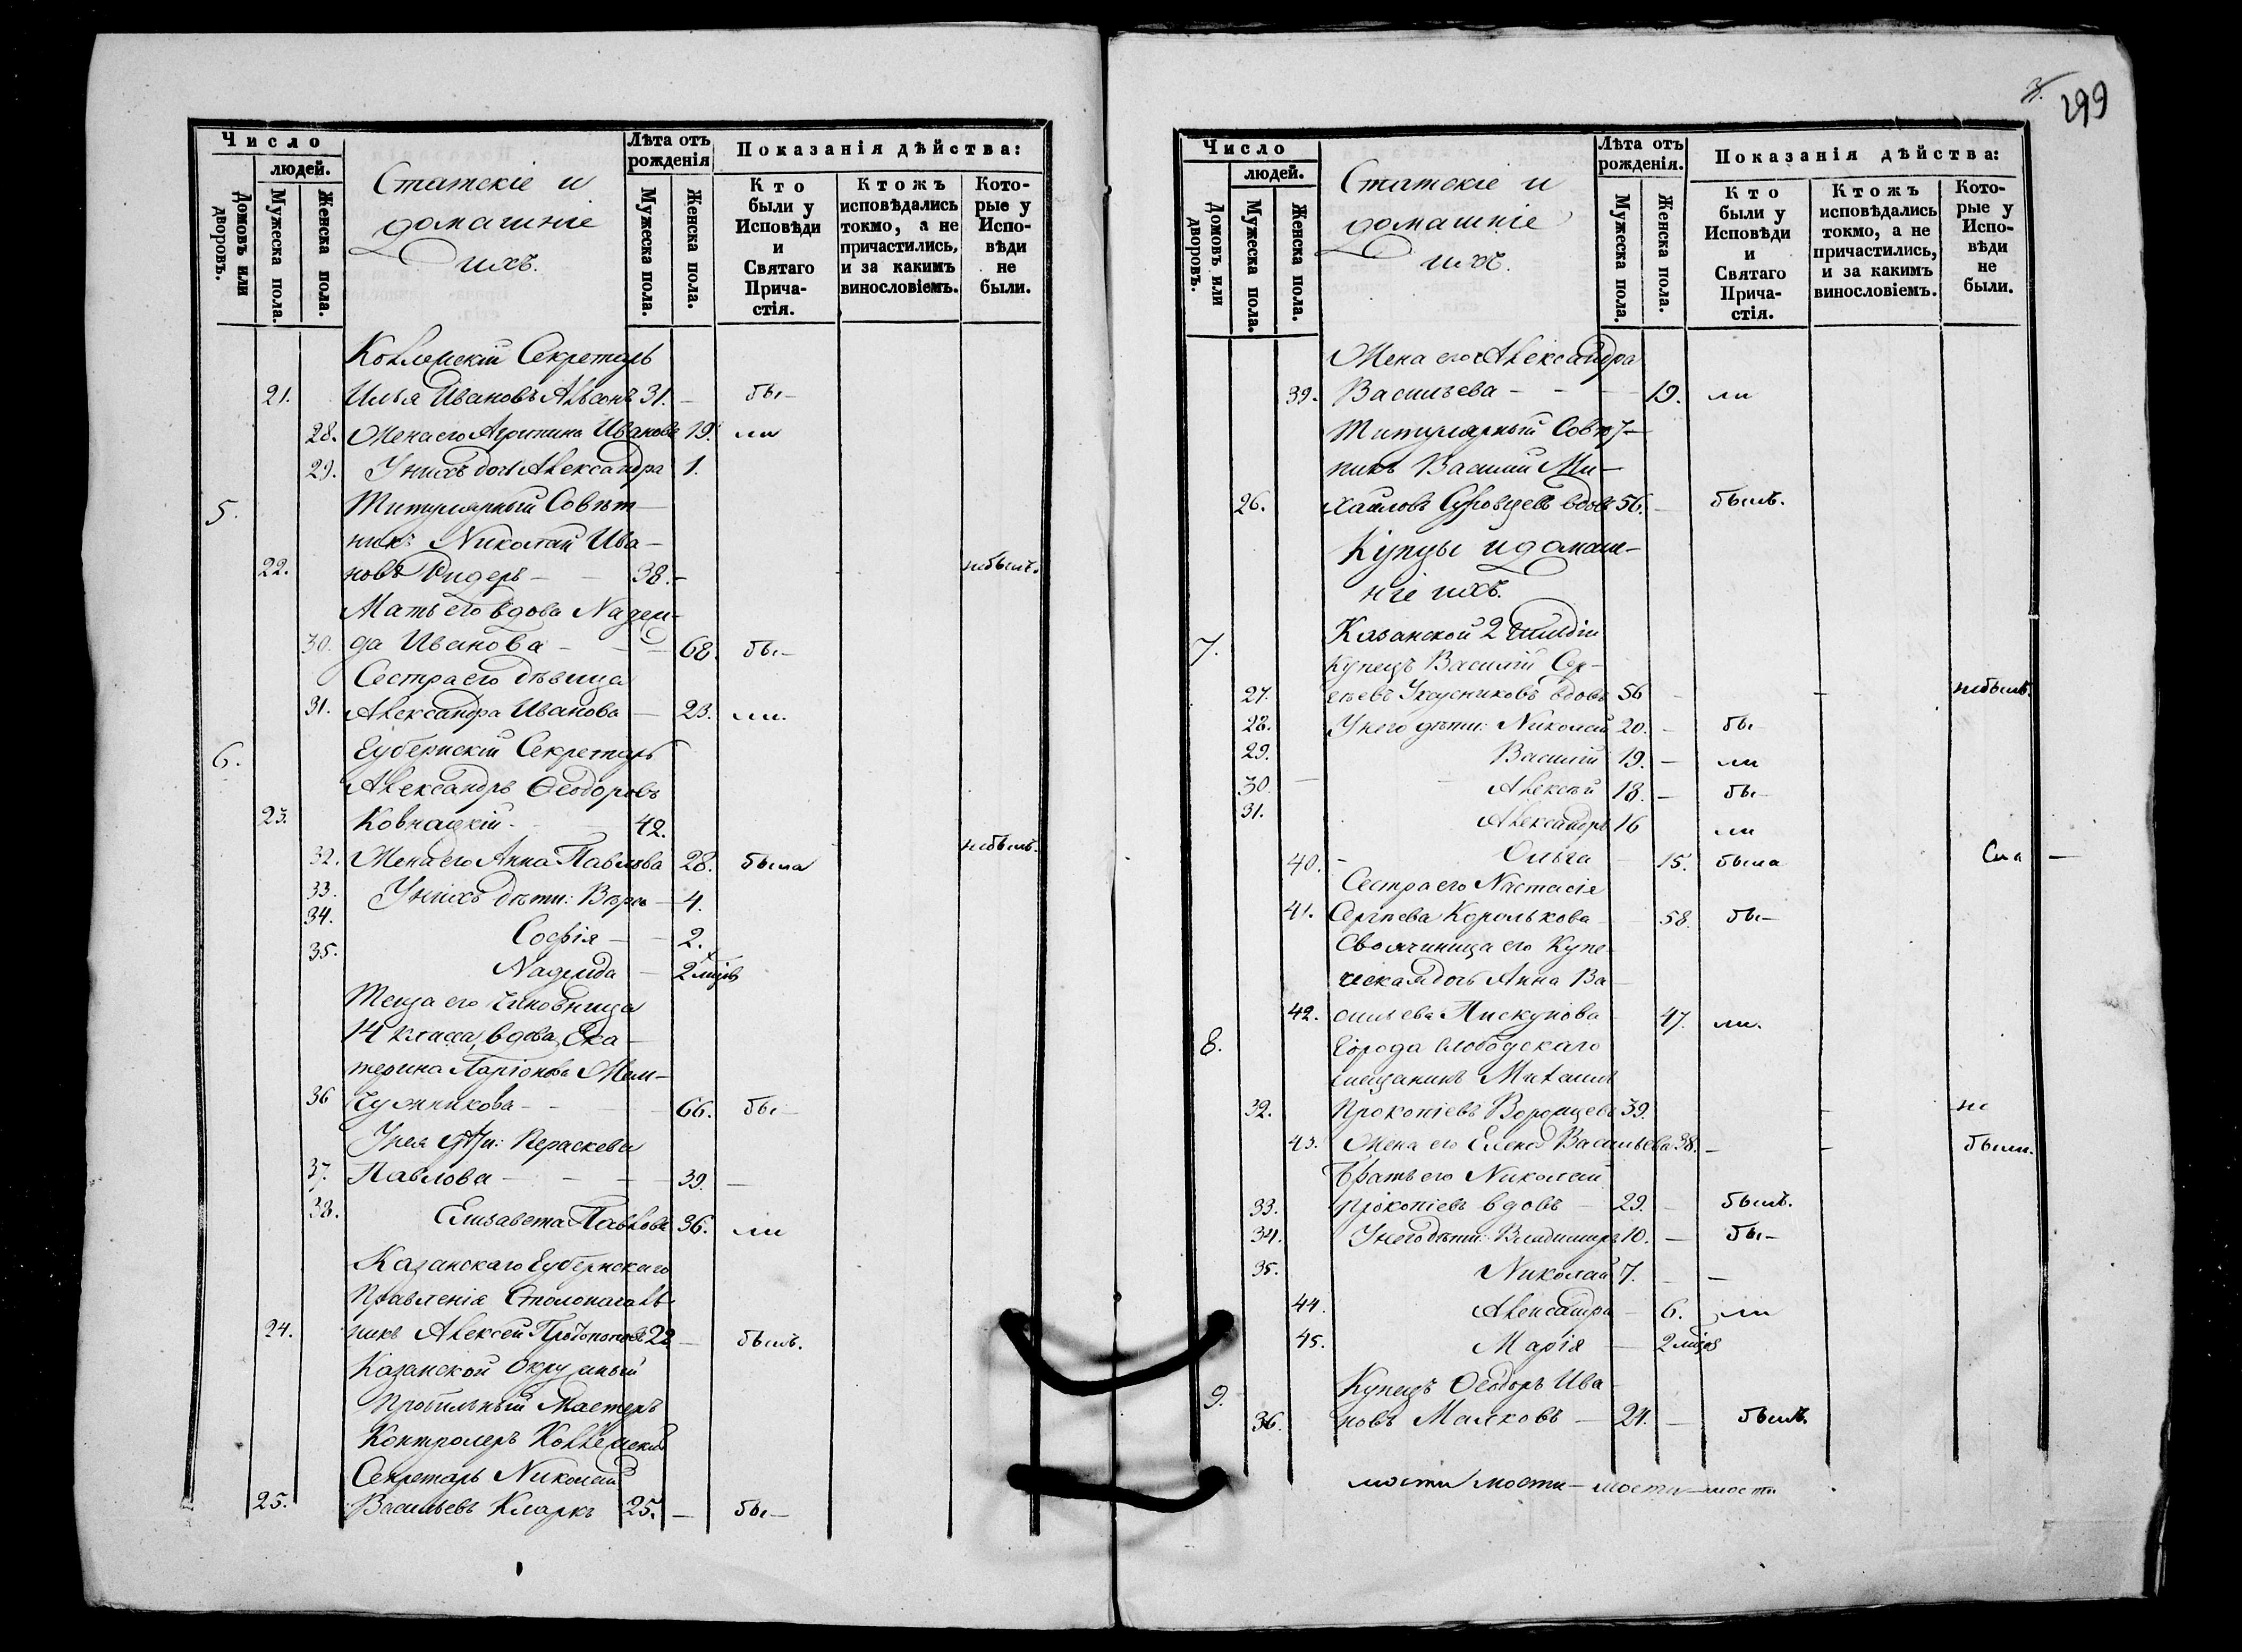 Число
людей.
Домовъ или дворовъ.
Мужеска пола.
Женска пола.
Статскіе и
домашніе
ихъ.
Лѣта отъ рожденія
Мужеска пола.
Женска пола.
Показанія дѣйства:
Кто были у Исповѣди и Святаго Прича-стія.
Ктожъ исповѣдались токмо, а не причастились, и за какимъ винословіемъ.
Кото-рые у Испо-вѣди не были.
Коллежскій Секретарь
21. Илья Ивановъ 31. – бы–
28. Жена его Агрипина Иванова 19. ли
29. У нихъ дочь Александра 1.
5. Титулярный Совѣт–
никъ Николай Ива–
22. новъ Ридеръ – – 38. – небылъ.
Мать его вдова Надеж–
30. да Иванова – – – 68. бы–
Сестра его дѣвица
31. Александра Иванова – 23. ли.
6. Губернскій Секретарь
Александръ Ѳеодоровъ
23. Ковнацкій – 42. небылъ.
32. Жена его Анна Павлова 28. была
33. У нихъ дѣти: Вѣра – 4.
34. Софія – – 2.
35. Надежда – 2 мцовъ
Теща его чиновница
14 класса, вдова, Ека–
терина Ларіонова
36 – – – 66. бы–
У нея дѣти: Параскева
37. Павлова – – – – 39. –
38. Елизавета Павлова 36. ли
Казанскаго Губернскаго
Правленія Столоначаль–
24. никъ Алексей Протопоповъ 22 – былъ.
Казанской Окружный
Пробильный Мастеръ
Контролеръ Коллежскій
Секретарь Николай
25. Васильевъ Кларкъ 25. – бы–
299
Число
людей.
Домовъ или дворовъ.
Мужеска пола.
Женска пола.
Статскіе и
домашніе
ихъ.
Лѣта отъ рожденія.
Мужеска пола.
Женска пола.
Показанія дѣйства:
Кто были у Исповѣди и Святаго Прича-стія.
Ктожъ исповѣдались токмо, а не причастились, и за какимъ винословіемъ.
Кото-рые у Испо-вѣди не были.
Жена его Александра
39. Васильева – – – 19. ли
Титулярный Совѣт–
никъ Василій Ми–
26. хаиловъ Суровцевъ вдовъ 56. – былъ.
Купцы и домаш–
ніе ихъ.
7. Казанской 2 гильдіи
купецъ Василій Сер–
27. геевъ Уксусниковъ вдовъ 56 – – небылъ.
28. У него дѣти: Николай 20. – бы
29. Василій 19. – ли
30. – – Алексѣй 18. – бы–
31. Александръ 16 ли
40. – Ольга – 15. была
Сестра его Настасія
41. Сергѣева Королькова – 58. бы–
Своячиница его Купе–
ческая дочь Анна Ва–
42. сильева Пискунова 47. ли.
8. Города Слободскаго
мещанинъ Михаилъ
32. Прокопіевъ Воронцевъ 39. – не
43. Жена его Елена Васильева 38. – – были.
Братъ его Николай
33. Прокопіевъ вдовъ – 29. – былъ.
34. У него дѣти: Владимиръ 10. – бы–
35. Николай 7. – –
44. Александра – 6. ли
45. Марія – 2 мцовъ
9. Купецъ Ѳеодоръ Ива–
36. новъ Маляковъ – 24. – былъ.
мости мости – мости – мости